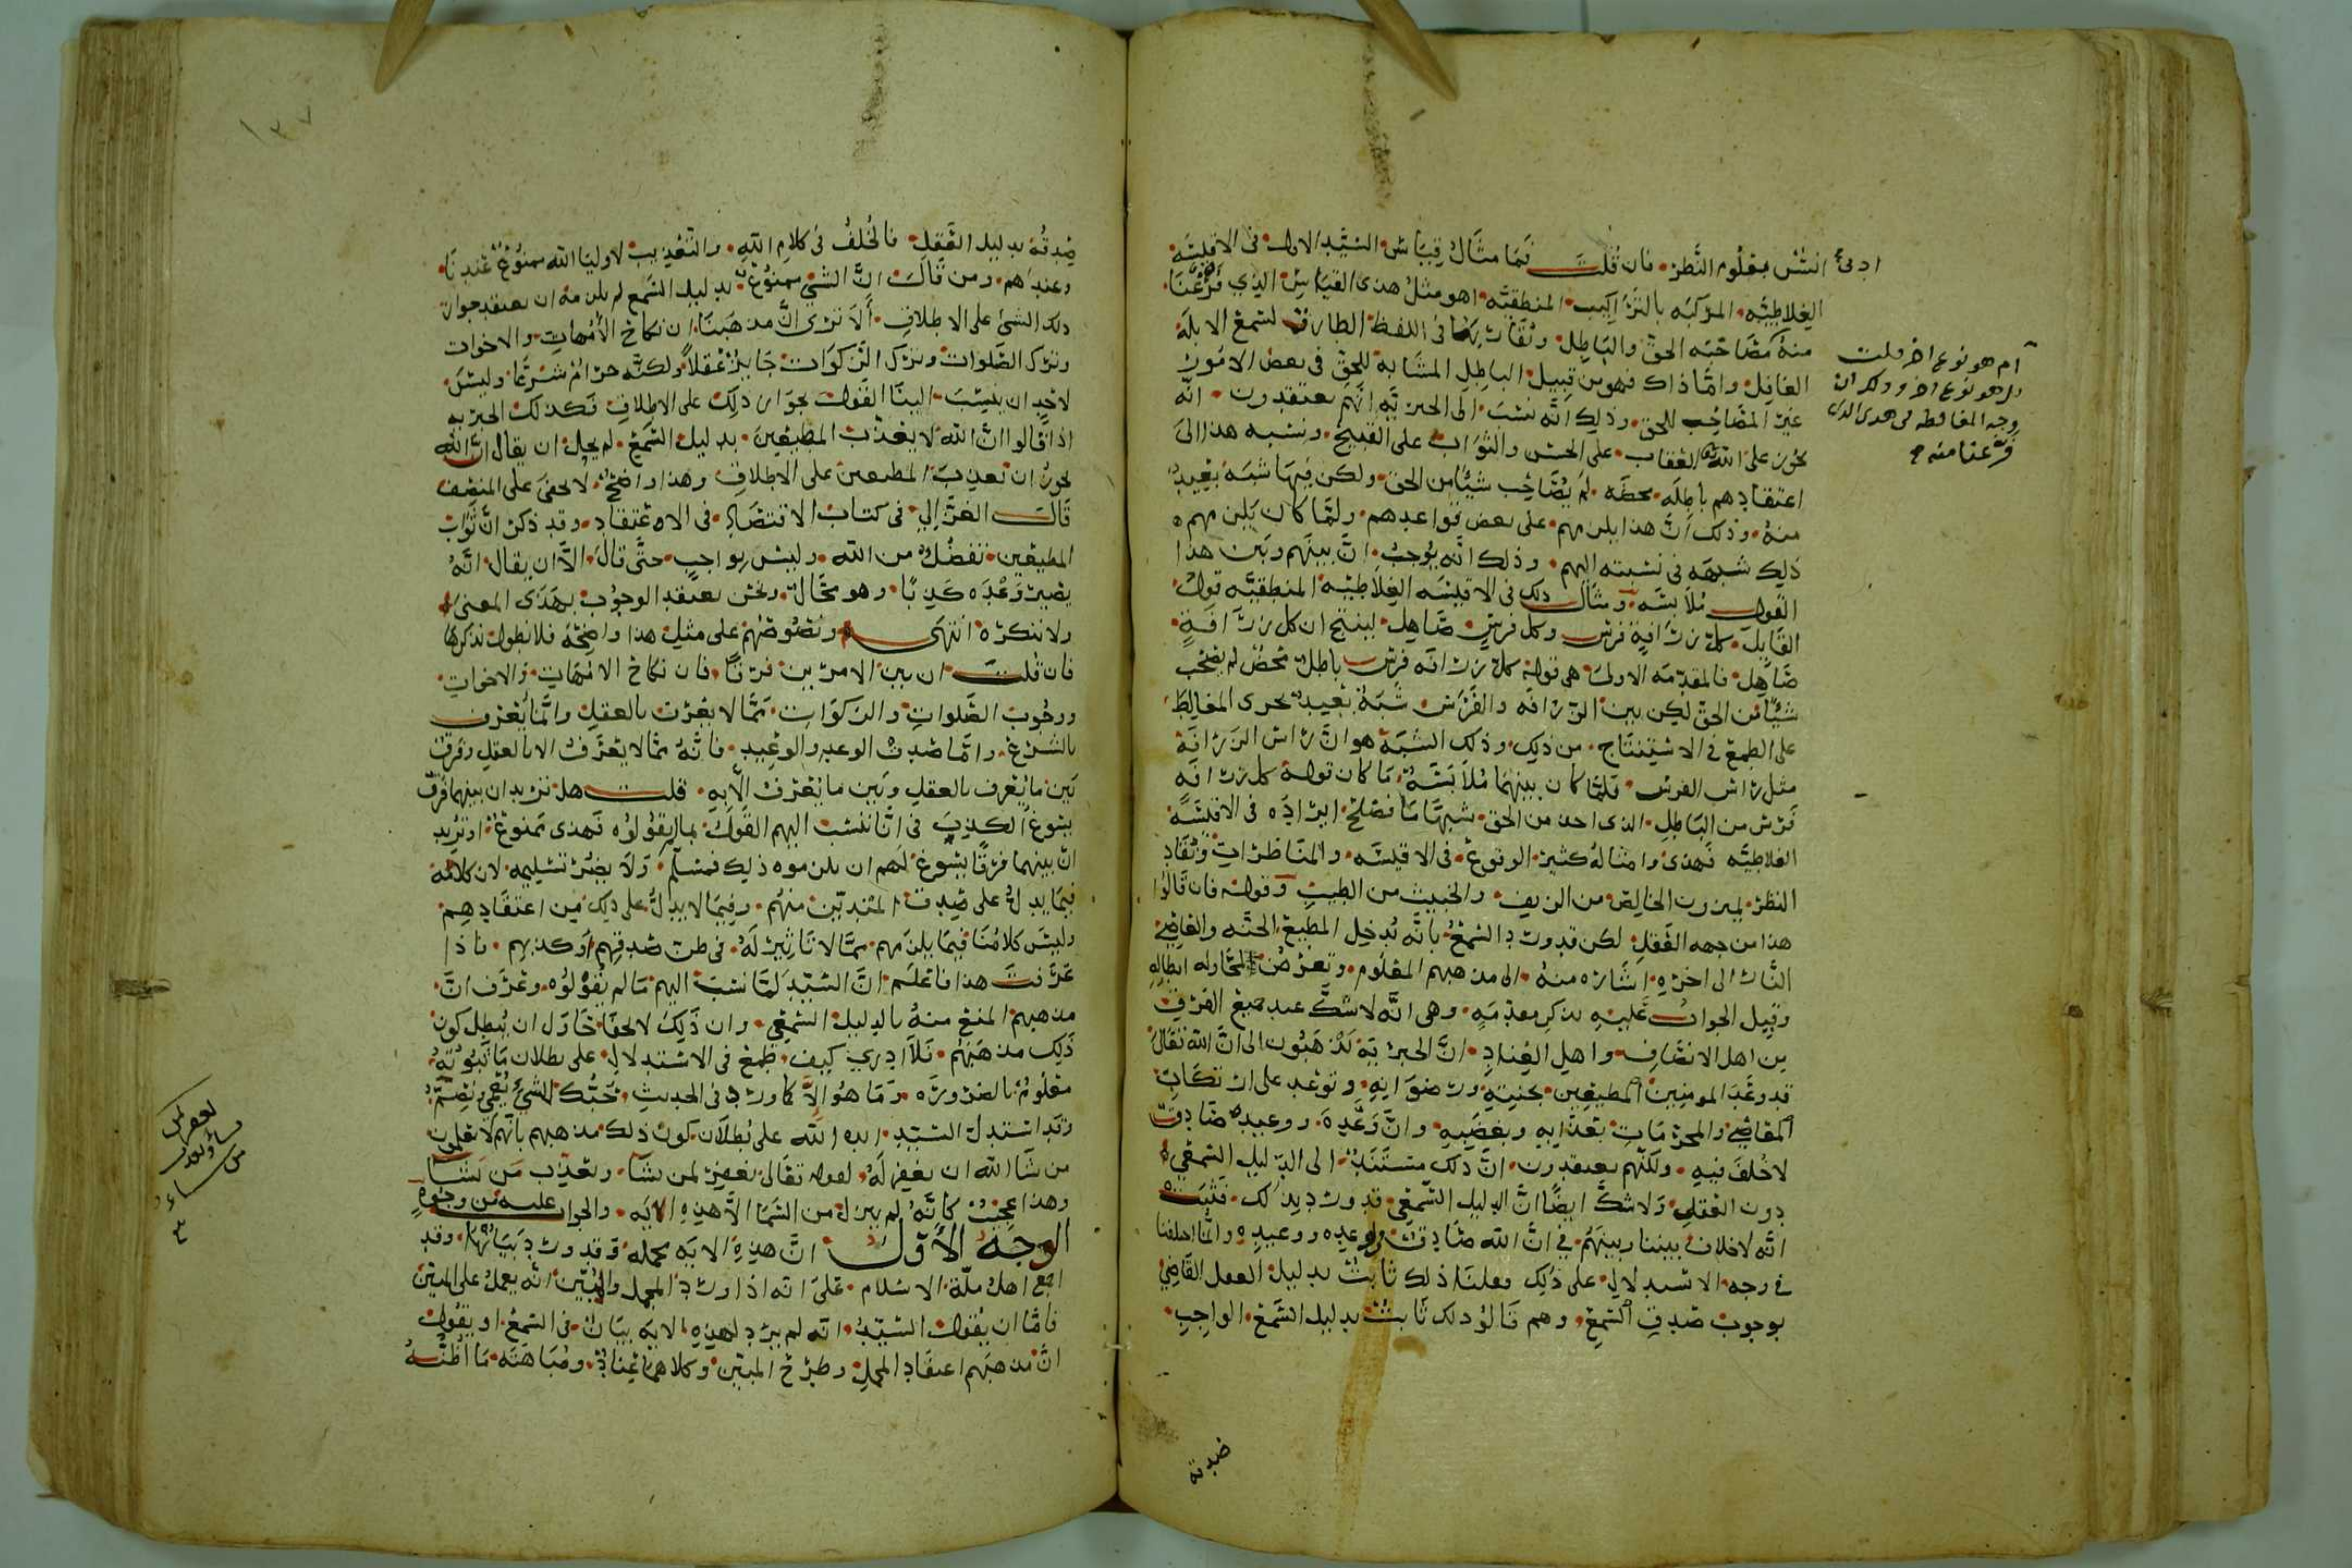 ادنى انس بعلوم النظر فان قلت فما مثال قياس السيد الاول فى الاقيسة
الغلاطيه المركبه بالتراكيب المنطقيه اهو مثل هذى القياس الذي فرغنا
منه مصاحبه الحق والباطل وتقاربهما فى اللفظ الطارق لسمع الابله
الغافل واما ذاك فهو من قبيل الباطل المشابه للحق فى بعض الامور
غير المصاحب للحق وذلك انه نسب الى الجبريه انهم يعتقدون انه
يجوز على الله العقاب على الحسن والثواب على القبيح ونسبه هذا الى
اعتقادهم باطله محضه لم يصاحب شيئا من الحق ولكن فيها شبه بعيد
منه وذلك ان هذا يلزمهم على بعض قواعدهم ولما كان يلزمهم
ذلك شبهه فى نسبته اليهم وذلك انه يوجب ان بينهم وبين هذا
القول ملابسه ومثال ذلك فى الاقيسه الغلاطيه المنطقيه قول
القايل كل زرافة فرس وكل فرس صاهل لينتج ان كل زرافة
صاهل فالمقدمه الاولى هى قوله كل زرافه فرس باطل محض لم يصحب
شيئا من الحق لكن بين الزرافه والفرس شبه بعيد يجرى المغالط
على الطمع فى الاستنتاج من ذلك وذلك الشبه هو ان راس الزرافة
مثل راس الفرس فلما كان بينهما ملابسة ما كان قوله كل زرافه
فرس من الباطل الذى اخذ من الحق شبها ما فصلح ايراده فى الاقيسة
الغلاطيه فهذى وامثاله كثير الوقوع فى الاقيسه والمناظرات ونقاد
النظر يميزون الخالص من الزيف والخبيث من الطيب وقوله فان قالوا
هذا من جهه العقل لكن قد ورد السمع بانه يدخل المطيع الجنه والعاصي
النار الى اخره اشاره منه الى مذهبهم المعلوم وتعرض لمحاوله ابطاله
وقبل الجواب عليه نذكر مقدمه وهى انه لا شك عند جميع الفرق
من اهل الانصاف واهل العناد ان الجبريه يذهبون الى ان الله تعالى
قد وعد المومنين المطيعين بجنته ورضوانه وتوعد على ارتكاب
المعاصي والمحرمات بعذابه وبغضبه وان وعده ووعيده صادق
لا خلف فيه ولكنهم يعتقدون ان ذلك مستند الى الدليل السمعي
دون العقل ولا شك ايضا ان الدليل السمعى قد ورد بذلك فثبت
انه لا خلاف بيننا وبينهم في ان الله صادق وعده ووعيده وانما اختلفنا
في وجه الاستدلال على ذلك فعلنا ذلك ثابت بدليل العقل القاضي
بوجوب صدق السمع وهم قالوا ذلك ثابت بدليل السمع الواجب
ام هو نوع اخر قلت
بل هو نوع اخر وذلك ان
وجه المغالطه فى هذى الذى
فرغنا منه
صدقه
صدقه بدليل العقل فالخلف في كلام الله والتعذيب لاوليا الله ممنوع عندنا
وعندهم ومن قال ان الشي ممنوع بدليل السمع لم يلزمه ان يعتقد جواز
ذلك الشئ على الاطلاق الا ترى ان مذهبنا ان نكاح الامهات والاخوات
وترك الصلوات وترك الزكوات جايز عقلا ولكنه حرام شرعا وليس
لاحد ان ينسب الينا القول بجواز ذلك على الاطلاق فكذلك الجبريه
اذا قالوا ان الله لا يعذب المطيعين بدليل السمع لم يحل ان يقال ان الله
يجوز ان يعذب المطيعين على الاطلاق وهذا واضح لا يخفى على المنصف
قال الغزالي فى كتاب الاقتصاد فى الاعتقاد وقد ذكر ان ثواب
المطيعين تفضل من الله وليس بواجب حتى قال الا ان يقال انه
يصير وعده كذبا وهو محال ونحن نعتقد الوجوب بهذى المعنى
ولا ننكره انتهى ونصوصهم على مثل هذا واضحه فلا نطول بذكرها
فان قلت ان بين الامرين فرقا فان نكاح الامهات والاخوات
ووجوب الصلوات والزكوات مما لا يعرف بالعقل وانما يعرف
بالشرع واما صدق الوعد والوعيد فانه مما لا يعرف الا بالعقل وفرق
بين ما يعرف بالعقل وبين ما يعرف الا به قلت هل تريد ان بينهما فرق
يسوغ الكذب فى ان ننسب اليهم القول بما لم يقولوه فهذى ممنوع او تريد
ان بينهما فرقا يسوغ لهم ان يلزموه ذلك فمسلم ولا يضر تسليمه لان كلامه
فيما يدل على صدق المتدين منهم وفيما لا يدل على ذلك من اعتقادهم
وليس كلامنا فيما يلزمهم مما لا تاثير له فى ظن صدقهم او كذبهم فاذا
عرفت هذا فاعلم ان السيد لما نسب اليهم ما لم يقولوه وعرف ان
مذهبهم المنع منه بالدليل السمعي وان ذلك لاحقا حاول ان يبطل كون
ذلك مذهبهم فلا ادري كيف طمع فى الاستدلال على بطلان ما ثبوته
معلوم بالضروره وما هو الا كما ورد فى الحديث حبك الشئ يعمي ويصم
وقد استدل السيد ايده الله على بطلان كون ذلك مذهبهم بانهم لا يعلمون
من شا الله ان يغفر له لقوله تعالى يغفر لمن يشا ويعذب من يشا
وهذا عجيب كانه لم ينزل من السما الا هذه الايه والجواب عليه من وجوه
الوجه الاول ان هذه الايه مجمله وقد ورد بيانها وقد
اجمع اهل ملة الاسلام على انه اذا ورد المجمل والمبين انه يعمل على المبين
فاما ان يقول السيد انه لم يرد لهذه الايه بيان فى السمع او يقول
ان مذهبهم اعتقاد المجمل وطرح المبين وكلاهما عناد ومباهته ما اظنه